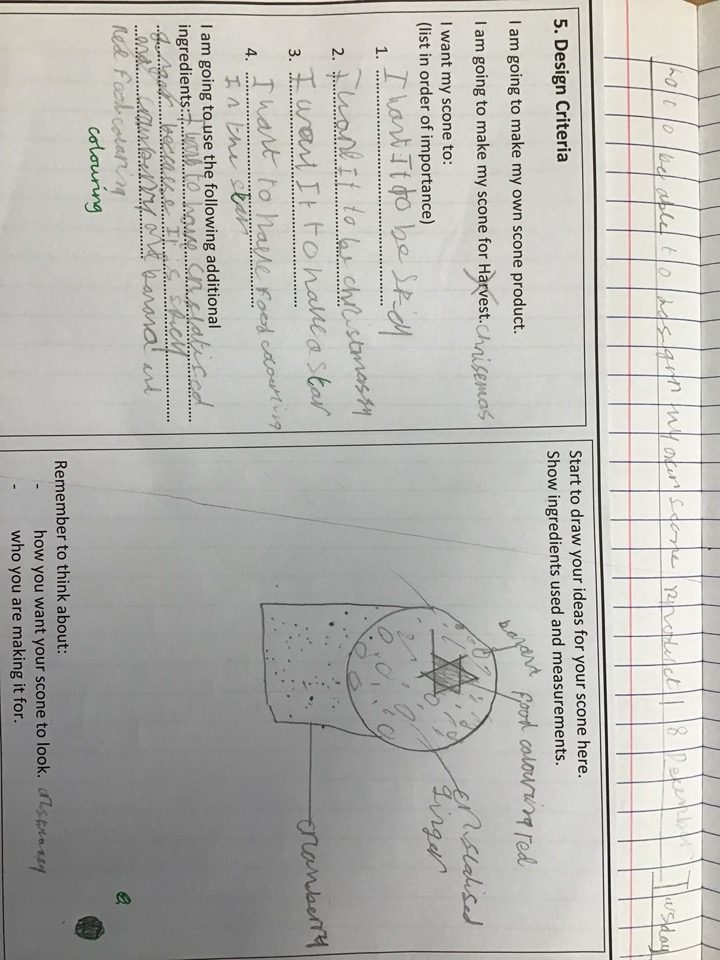 not to be able to design my own scone product 18 December Tuesday
5. Design Criteria
I am going to make my own scone product.
I am going to make my scone for Harvest. chrisemas
I want my scone to:
(list in order of importance)
1. I want It to be
2. I want It to be christmassy
3. I want It to have a star
4. I want to have Food colouring
In the star
I am going to use the following additional
ingredients: I want to have
because It is
and cranberry and banana
Red Food colouring
colouring
Start to draw your ideas for your scone here.
Show ingredients used and measurements.
food colouring red
ginger
cranberry
Remember to think about:
- how you want your scone to look.
- who you are making it for.